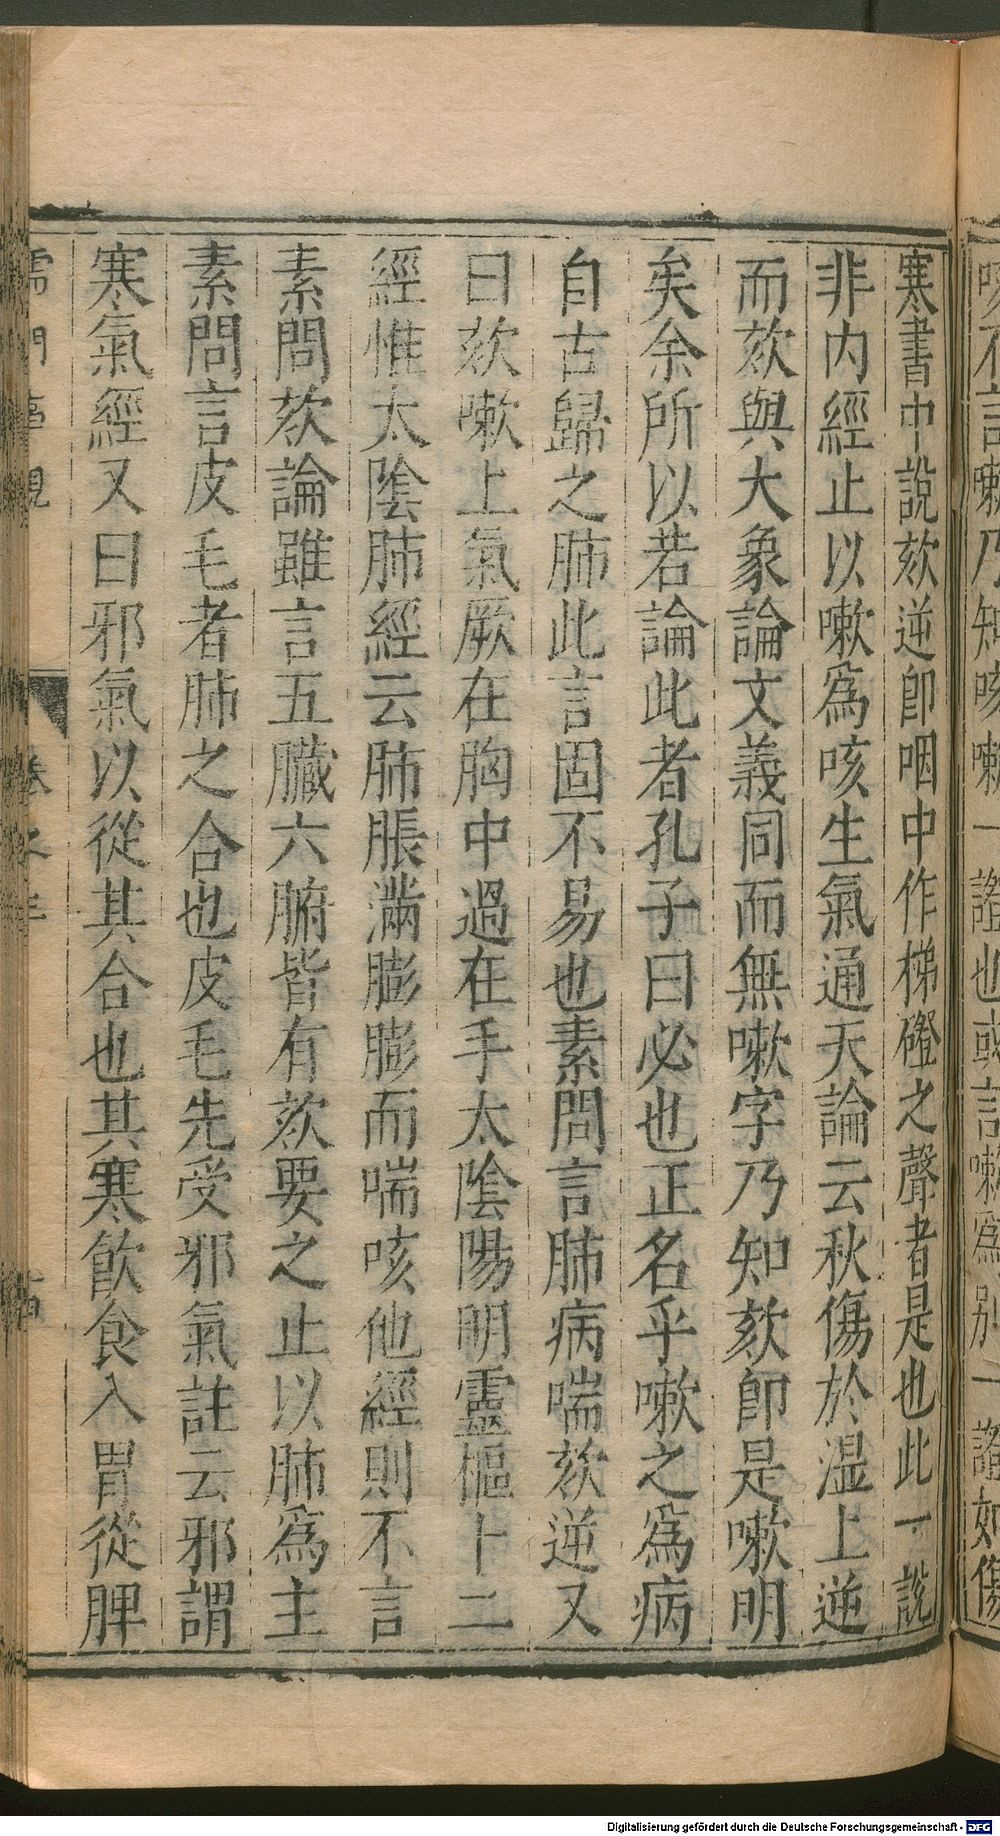 寒書中說欬逆即咽中作梯磴之聲者是也此一說
非内經止以嗽爲咳生氣通天論云秋傷於湿上逆
而欬與大象論文義同而無嗽字乃知欬即是嗽明
矣余所以若論此者孔子曰必也正名乎嗽之爲病
自古歸之肺此言固不易也素問言肺病喘欬逆又
曰欬嗽上氣厥在胸中過在手太陰陽明靈樞十二
經惟太陰肺經云肺脹滿膨膨而喘咳他經則不言
素問欬論雖言五臟六腑皆有欬要之止以肺爲主
素問言皮毛者肺之合也皮毛先受邪氣註云邪謂
寒氣經又曰邪氣以從其合也其寒飲食入胃從脾
儒門事親
卷之三
Digitalisierung gefördert durch die Deutsche Forschungsgemeinschaft - DFG